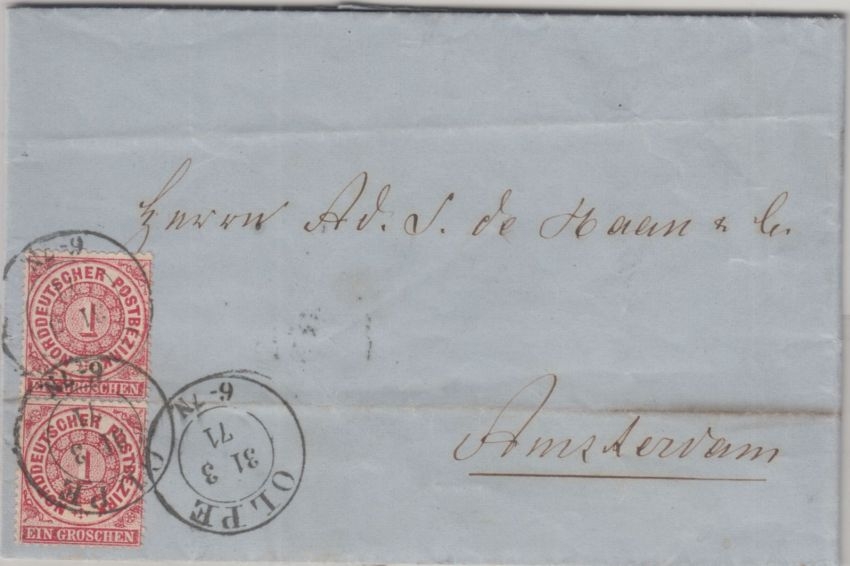 Herrn Ad. S. de Haan & Co.
Amsterdam
NORDDEUTSCHER POSTBEZIRK
1
EIN GROSCHEN
NORDDEUTSCHER POSTBEZIRK
1
EIN GROSCHEN
OLPE
31 3
71
6-7N
OLPE
31 3
6-7N
6-7N